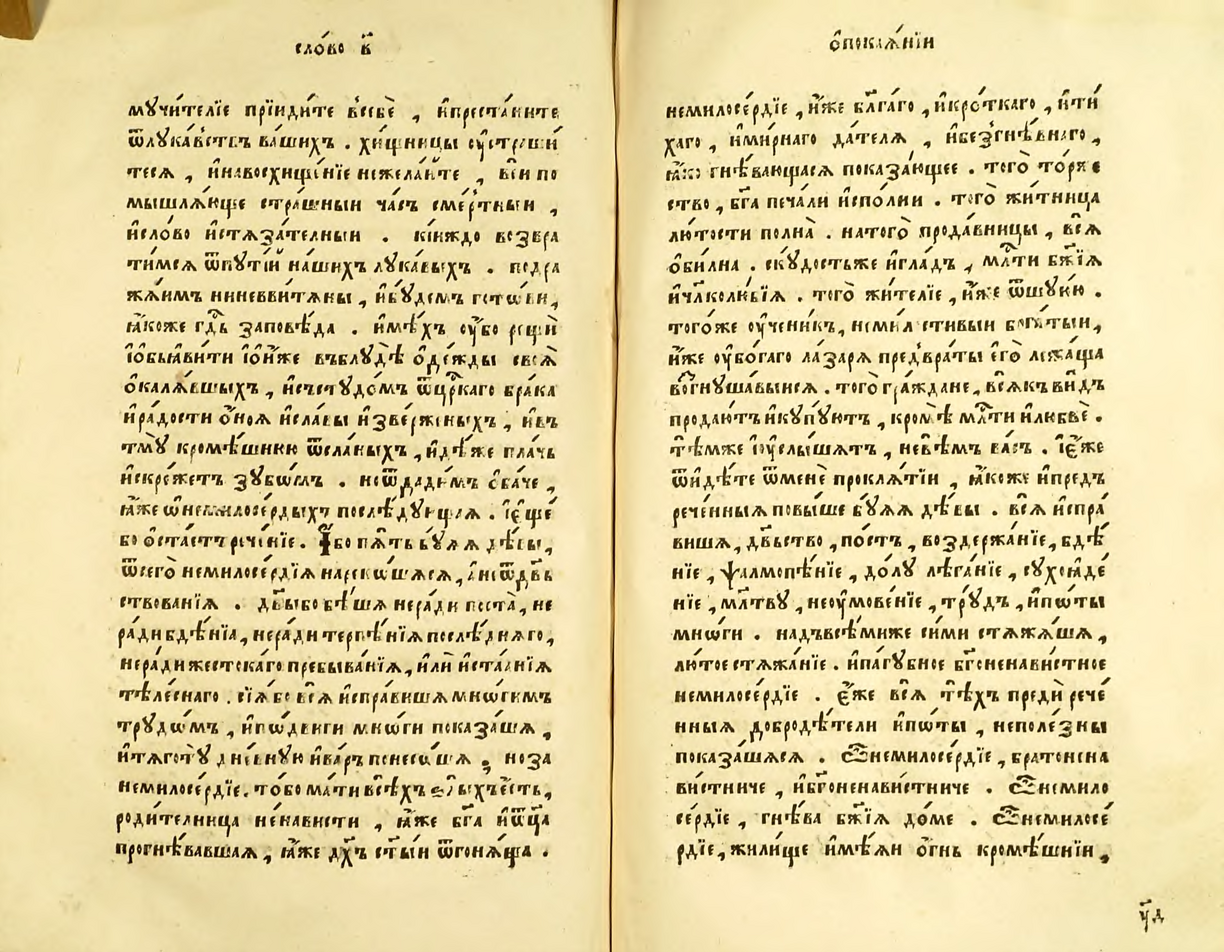 сло́во в҃
мꙋчи́телїе прїиди́те в̾себѐ , и҆преста́ните
ѿлꙋка́в̾ствъ ва́шихъ . хи́щницы оу҆страши́
теся , и҆навосхище́нїе нежела́йте , вси по
мышля́юще стра́шныи ча́съ сме́ртныи ,
и҆сло́во и҆стѧза́телныи . кі́иждо возвра
ти́мсѧ ѿпꙋті́й на́шихъ лꙋка́выхъ . подра
жа́имъ ниневвитѧ́ны , и҆бꙋ́демъ гото́ви ,
ꙗ҆́коже гдⷭ҇ь заповѣ́да . и҆мѣ́хъ оу҆́бо рещѝ
і҆объꙗви́ти і҆о҆и҆́же въблꙋ́дѣ ѻ҆де́жды своѧ̀
ѡ҆калѧ́вшыхъ , и҆стꙋдо́мъ ѿцрⷭ҇каго бра́ка
и҆ра́дости ѻ҆́ноѧ и҆сла́вы и҆зве́рженыхъ , и҆въ
тмꙋ̀ кромѣ́шнюю ѿсла́ныхъ , и҆дѣ́же пла́чь
и҆скре́жетъ зꙋбѡ́мъ . но ѿдади́мъ ѻ҆ба́че ,
ꙗ҆́же ѡ҆немилосе́рдыхъ послѣ́дꙋющаѧ . і҆є҆ще́
бо ѻ҆ста́стъ рече́нїе . И҆́бо пѧ́ть бꙋ́ѧѧ дѣ́вы ,
ѿсегѡ̀ немилосе́рдїѧ нареко́шасѧ , а҆неѿдв҃ь
ствованїѧ . дв҃ыбо бѣ́шѧ неради поста̀ , не
ра́ди бдѣ́нїа , нера́ди терпѣ́нїѧ послѣ́днѧго ,
нера́ди же́стокаго пребыва́нїѧ , и҆лѝ и҆ста́ѧнїѧ
тѣле́снаго . сїѧ́ бо всѧ̀ и҆спра́вишѧ мно́гимъ
трꙋдо́мъ , и҆по́двиги мнѡ́ги показа́шѧ ,
и҆тѧготꙋ̀ дне́внꙋю и҆ва́ръ понесо́шѧ , но за
немилосе́рдїе . то́ бо ма́ти всѣ́хъ злы́хъ е҆́сть ,
роди́телница не́нависти , ꙗ҆́же бг҃а и҆ѿц҃а
прогнѣ́вавшаѧ , ꙗ҆́же дх҃ъ ст҃ы́и ѿгонѧ́ща .
ѡ҆покаѧ́нїи
немилосе́рдїе , и҆́же бл҃га́го , и҆кро́ткаго , и҆ти́
хаго , и҆ми́рнаго да́телѧ , и҆безгнѣ́внаго ,
ꙗ҆́ко гнѣ́вающасѧ показа́ющее . того̀ то́рже
ство , бг҃а печа́ли и҆спо́лни . того̀ жи́тница
лю́тости полна̀ . натого̀ прода́вницы , всѧ̀
ѻ҆би́лна . скꙋ́достьже и҆гла́дъ , млⷭ҇ти бж҃їѧ
и҆чл҃коли́вїѧ . того̀ жи́телїе , и҆́же ѿшꙋ́юю .
тогоже оу҆чени́къ , неми́лостивыи бога́тыи ,
и҆́же оу҆бо́гаго ла́зарѧ пред̾враты̀ е҆го̀ лежа́ща
возгнꙋша́выисѧ . того̀ гра́ждане , всѧ́къ ви́дъ
продаю́тъ и҆кꙋпꙋ́ютъ , кромѣ̀ млⷭ҇ти и҆любвѐ .
тѣ́мже і҆оу҆слы́шѧтъ , невѣ́мъ ва́съ . і҆є҆́же
ѿидѣ́те ѿменѐ проклѧ́тїи , ꙗ҆́коже и҆пре́дъ
рече́нныѧ повы́ше бꙋ́ѧѧ дѣ́вы . всѧ̀ и҆спра́
вишѧ , дв҃ьство , по́стъ , воздержа́нїе , бдѣ́
нїе , ѱалмопѣ́нїе , до́лꙋ лѣга́нїе , сꙋхоꙗ҆де́
нїе , мл҃твꙋ , неоу҆мове́нїе , трꙋ́дъ , и҆по́ты
мно́ги . надъвсѣ́миже си́ми стѧжа́шѧ ,
лю́тое стѧжа́нїе . и҆па́гꙋбное бг҃оненави́стное
немилосе́рдїе . є҆́же всѧ̀ тѣ́хъ предирече́
нныѧ добродѣ́тели и҆по́ты , неполе́зны
показа́шѧсѧ . Ѽнемилосе́рдїе , братонена
ви́стниче , и҆бг҃оненави́стниче . Ѽнемило
се́рдїе , гнѣ́ва бж҃їѧ до́ме . Ѽнемилосе́
рдїе , жили́ще и҆мѣ́ѧи ѻ҆́гнь кромѣ́шнїи ,
ч҃д